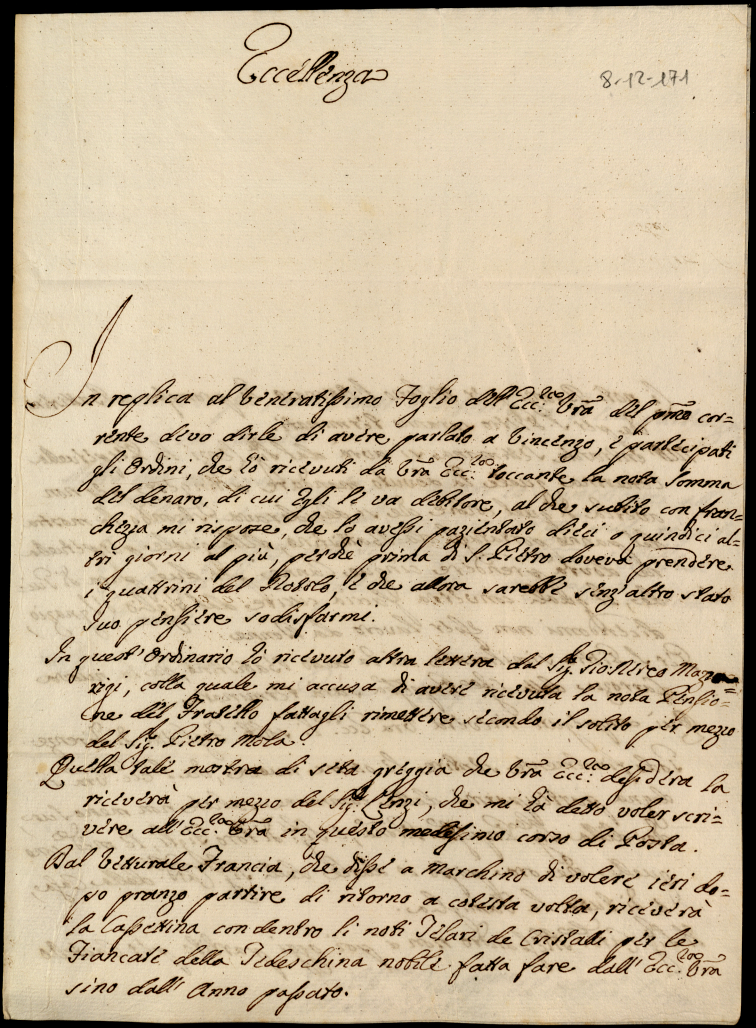 Eccellenza
8-12-171
In replica al veneratissimo Foglio dell'Ecc.za Vra del pmo cor=
rente devo dirle di avere parlato a Vincenzo, e partecipati
gli Ordini, che hò ricevuti da Vra Ecc.za toccante la nota somma
del denaro, di cui Egli le va debitore, al che subito con fran=
chezza mi rispose, che lo avessi pazientato dieci o quindici al=
tri giorni al più, perchè prima di S. Pietro doveva prendere
i quattrini del , e che allora sarebbe senz'altro stato
suo pensiere sodisfarmi.
In quest'Ordinario hò ricevuto altra lettera dal Sig.
, colla quale mi accusa di avere ricevuta la nota Pensio=
ne del Fratello fattagli rimettere secondo il solito per mezzo
del Sig. Pietro Mola.
Quella tale mostra di seta greggia che Vra Ecc.za desidera la
riceverà per mezzo del Sig. , che mi hà detto voler scri=
vere all'Ecc.za Vra in questo medesimo corso di Posta.
Dal Vetturale Francia, che disse a Marchino di volere ieri do=
po pranzo partire di ritorno a cotesta volta, riceverà
la Cassettina con dentro li noti Telari de Cristalli per le
Fiancate della Tedeschina nobile fatta fare dall'Ecc.za Vra
sino dall'Anno passato.